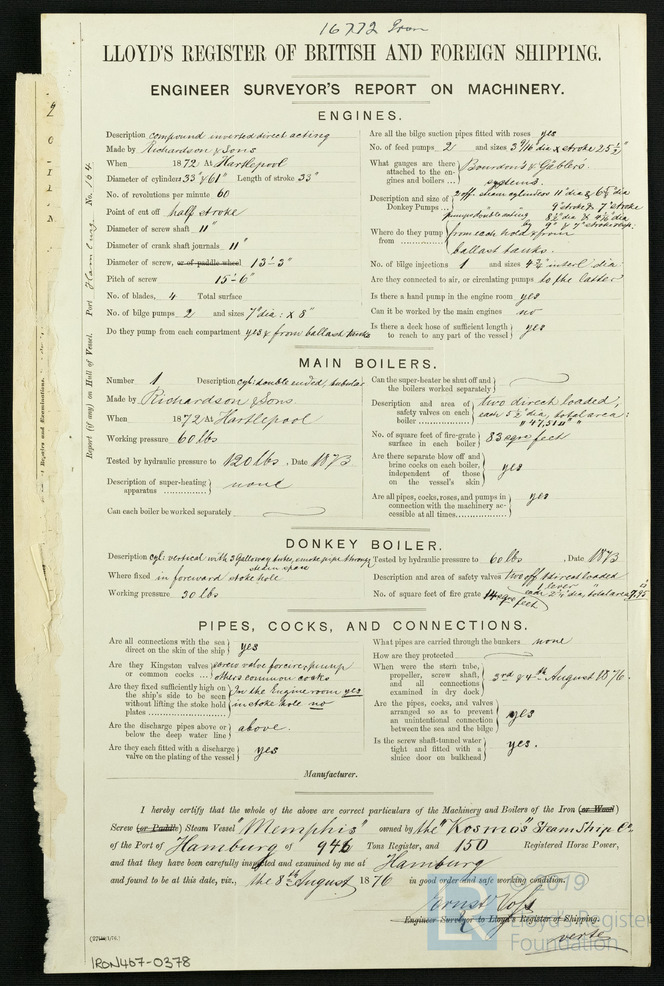 16772 Iron
LLOYD'S REGISTER OF BRITISH AND FOREIGN SHIPPING.
ENGINEER SURVEYOR'S REPORT ON MACHINERY.
Report (if any) on Hull of Vessel. Port Hamburg No. 164
ENGINES.
Description compound inverted direct acting
Made by Richardson & Sons
When 1872 At Hartlepool
Diameter of cylinders 33" & 61" Length of stroke 33"
No. of revolutions per minute 60
Point of cut off half stroke
Diameter of screw shaft 11"
Diameter of crank shaft journals 11"
Diameter of screw, or of paddle wheel 13'-3"
Pitch of screw 15'-6"
No. of blades, 4 Total surface
No. of bilge pumps 2 and sizes 7" dia: x 8"
Do they pump from each compartment yes & from ballast tanks
Are all the bilge suction pipes fitted with roses yes
No. of feed pumps 2 and sizes 3 9/16" dia x stroke 25½"
What gauges are there attached to the engines and boilers ... Bourdon's & Gäbler's systems.
Description and size of Donkey Pumps ... 2 off. steam cylinders 11" dia & 6½" dia
9" stroke & 7" stroke
pumps double acting
Where do they pump from from each hold & from
ballast tanks.
No. of bilge injections 1 and sizes 4¾" interl dia
Are they connected to air, or circulating pumps to the latter
Is there a hand pump in the engine room yes
Can it be worked by the main engines no
Is there a deck hose of sufficient length to reach to any part of the vessel yes
MAIN BOILERS.
Number 1 Description cyl: double ended, tubular
Made by Richardson & Sons.
When 1872 At Hartlepool
Working pressure 60 lbs
Tested by hydraulic pressure to 120 lbs, Date 1873
Description of super-heating apparatus none
Can each boiler be worked separately
Can the super-heater be shut off and the boilers worked separately
Description and area of safety valves on each boiler two direct loaded,
each 5½" dia, total area:
47,51 □"
No. of square feet of fire-grate surface in each boiler 83 sqre feet
Are there separate blow off and brine cocks on each boiler, independent of those on the vessel's skin yes
Are all pipes, cocks, roses, and pumps in connection with the machinery accessible at all times yes
DONKEY BOILER.
Description cyl: vertical with 3 Galloway tubes, smoke pipe through
steam space
Where fixed in foreward stoke hole
Working pressure 30 lbs
Tested by hydraulic pressure to 60 lbs, Date 1873
Description and area of safety valves two off 1 direct loaded
1 lever
No. of square feet of fire grate 14 sqre feet each 2¼" dia, total area 7.95 □"
PIPES, COCKS, AND CONNECTIONS.
Are all connections with the sea direct on the skin of the ship yes
Are they Kingston valves or common cocks screw valve for circr: pump
others common cocks
Are they fixed sufficiently high on the ship's side to be seen without lifting the stoke hold plates In the Engine room yes
in stoke hole no
Are the discharge pipes above or below the deep water line above.
Are they each fitted with a discharge valve on the plating of the vessel yes
What pipes are carried through the bunkers none
How are they protected
When were the stern tube, propeller, screw shaft, and all connections examined in dry dock 3rd & 4th August 1876.
Are the pipes, cocks, and valves arranged so as to prevent an unintentional connection between the sea and the bilge yes
Is the screw shaft-tunnel water tight and fitted with a sluice door on bulkhead yes.
Manufacturer.
I hereby certify that the whole of the above are correct particulars of the Machinery and Boilers of the Iron (or Wood)
Screw (or Paddle) Steam Vessel "Memphis" owned by the "Kosmos" Steam Ship Co.
of the Port of Hamburg of 946 Tons Register, and 150 Registered Horse Power,
and that they have been carefully inspected and examined by me at Hamburg
and found to be at this date, viz., the 8th August 1876 in good order and safe working condition.
Engineer Surveyor to Lloyd's Register of Shipping.
verte
© 2019
Lloyd's Register
Foundation
IRON467-0378